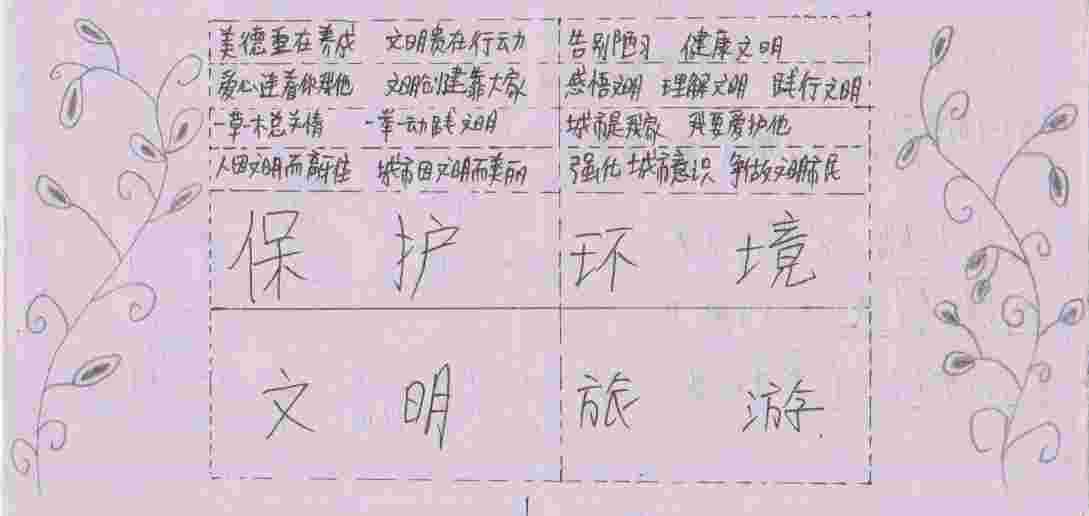 美德重在养成 文明贵在行动 告别陋习 健康文明
爱心连着你我他 文明创建靠大家 感悟文明 理解文明 践行文明
一草一木总关情 一举一动践文明 城市是我家 我要爱护他
人因文明而高 城市因文明而美丽 强化城市意识 争做文明市民
保护环境
文明旅游